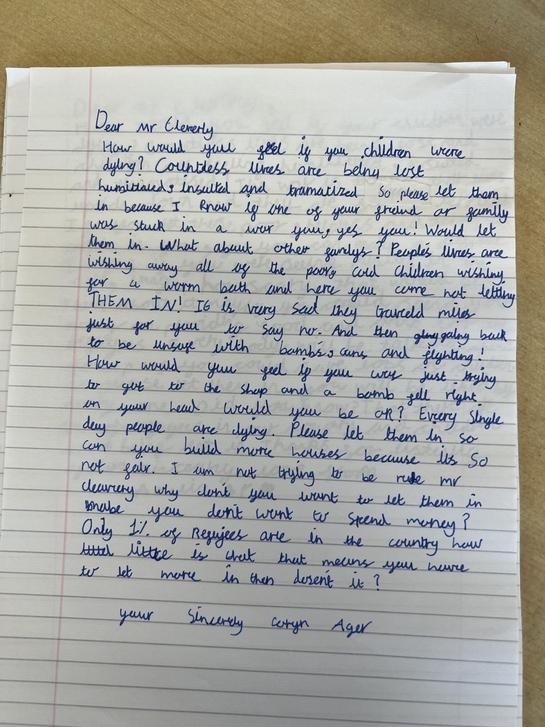 Dear Mr Cleverly
How would you feel if you children were
dying? Countless lives are being lost
humiliaded, insulted and tramatized So please let them
in because I know if one of your freind or family
was stuck in a war you, yes you! Would let
them in. What about other familys? People's lives are
wishing away all of the poor, cold children wishing
for a worm bath and here you come not letting
THEM IN! It is very sad they traveld miles
just for you to say no. And then going back
to be unsafe with bombs, guns and fighting!
How would you feel if you was just trying
to get to the shop and a bomb fell right
on your head would you be OK? Every single
day people are dying. Please let them in so
can you build more houses because its So
not fair. I am not trying to be rude mr
cleavery why don't you want to let them in
mabe you don't want to spend money?
Only 1% of Refugees are in the country how
little is that that means you have
to let more in then dosent it?
your Sincerely Ager